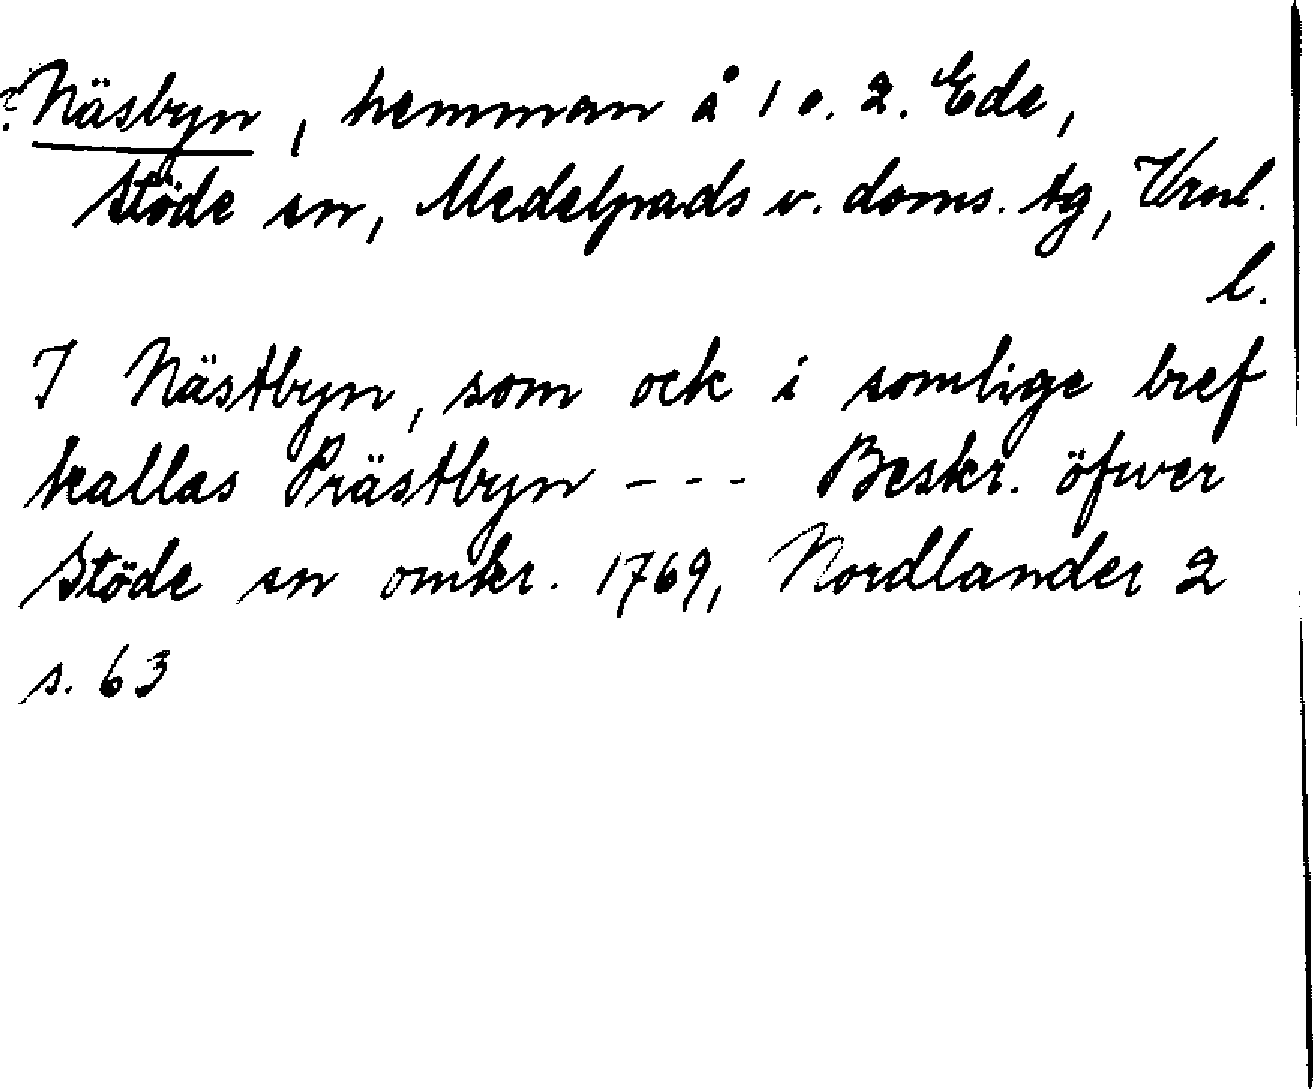 ? Näsbyn, hemman å 1 o. 2. Ede,
Stöde sn, Medelpads v. doms. tg, Vrnl.
l.
I Nästbyn, som ock i somlige bref
kallas Prästbyn - - - Beskr. öfwer
Stöde sn omkr. 1769, Nordlander 2
s. 63